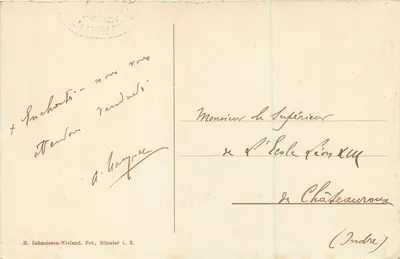 + Enchanté – nous vous
attendons vendredi.
Monsieur le Supérieur
de L'École Léon XIII
de Châteauroux
(Indre)
H. Zahneissen-Wieland, Fot., Münster i. E.